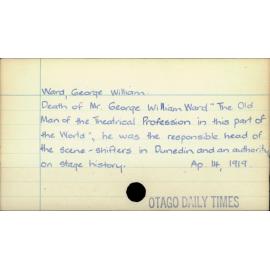 Ward, George William.
Death of Mr. George William Ward "The Old
Man of the Theatrical Profession in this part of
the World", he was the responsible head of
the scene-shifters in Dunedin and an authority
on stage history. Ap. 14, 1919.
OTAGO DAILY TIMES